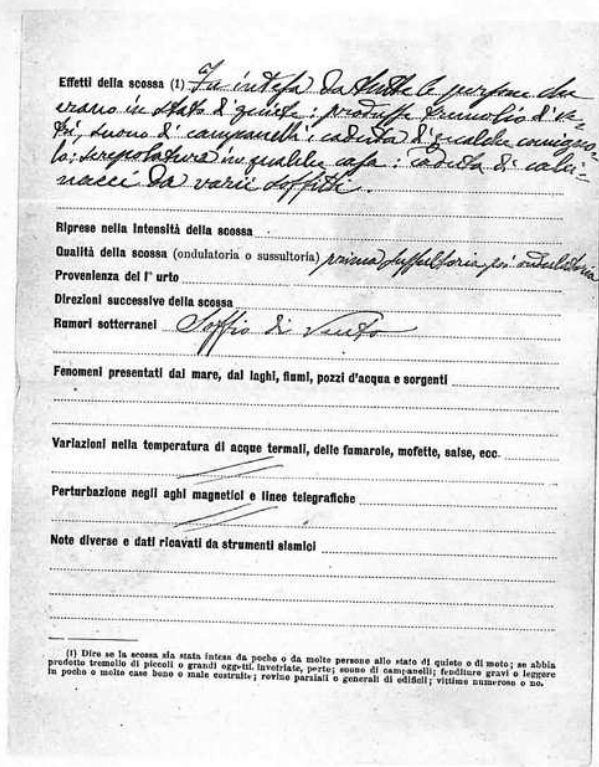 Effetti della scossa (1) Fu intesa da tutte le persone che
erano in stato di quiete: produsse tremolio di ve-
tri, suono di campanelli, caduta di qualche comigno-
lo; screpolatura in qualche casa: caduta di calci-
nacci da varii soffitti.
Riprese nella intensità della scossa
Qualità della scossa (ondulatoria o sussultoria) prima sussultoria, poi ondulatoria
Provenienza del 1° urto
Direzioni successive della scossa
Rumori sotterranei Soffio di Vento
Fenomeni presentati dal mare, dai laghi, fiumi, pozzi d'acqua e sorgenti
Variazioni nella temperatura di acque termali, delle fumarole, mofette, salse, ecc.
Perturbazione negli aghi magnetici e linee telegrafiche
Note diverse e dati ricavati da strumenti sismici
(1) Dire se la scossa sia stata intesa da poche o da molte persone allo stato di quiete o di moto; se abbia
prodotto tremolio di piccoli o grandi oggetti, invetriate, porte; suono di campanelli; fenditure gravi o leggere
in poche o molte case bene o male costruite; rovine parziali o generali di edifici; vittime numerose o no.